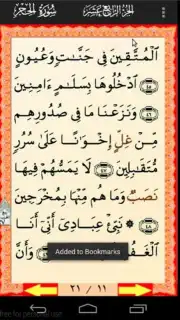 الجزء الرابع عشر سورة الحجر
الْمُتَّقِينَ فِي جَنَّٰتٍ وَعُيُونٍ
٤٥ ادْخُلُوهَا بِسَلَٰمٍ ءَامِنِينَ
٤٦ وَنَزَعْنَا مَا فِي صُدُورِهِم
مِّنْ غِلٍّ إِخْوَٰنًا عَلَىٰ سُرُرٍ
مُّتَقَٰبِلِينَ ٤٧ لَا يَمَسُّهُمْ فِيهَا
نَصَبٌ وَمَا هُم مِّنْهَا بِمُخْرَجِينَ
٤٨ ۞ نَبِّئْ عِبَادِي أَنِّي أَنَا
الْغَفُورُ وَأَنَّ
Added to Bookmarks
٢١ / ١١